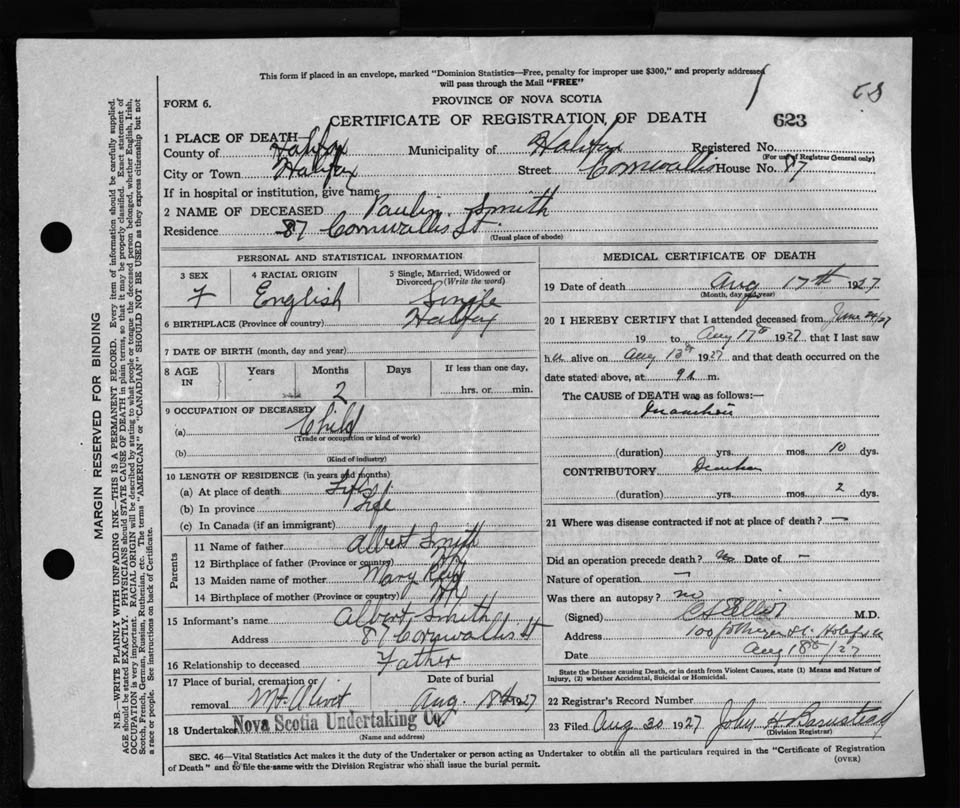 This form if placed in an envelope, marked "Dominion Statistics—Free, penalty for improper use $300," and properly addressed
will pass through the Mail "FREE"
58
FORM 6.
PROVINCE OF NOVA SCOTIA
CERTIFICATE OF REGISTRATION OF DEATH
623
1 PLACE OF DEATH
County of Halifax Municipality of Halifax Registered No.
(For use of Registrar General only)
City or Town Halifax Street Cornwallis House No. 87
If in hospital or institution, give name
2 NAME OF DECEASED Paulin Smith
Residence 87 Cornwallis St.
(Usual place of abode)
PERSONAL AND STATISTICAL INFORMATION
3 SEX 4 RACIAL ORIGIN 5 Single, Married, Widowed or
Divorced (Write the word)
F English Single
6 BIRTHPLACE (Province or country) Halifax
7 DATE OF BIRTH (month, day and year)
8 AGE IN Years Months Days If less than one day,
2 hrs. or min.
9 OCCUPATION OF DECEASED
(a) Child
(Trade or occupation or kind of work)
(b)
(Kind of industry)
10 LENGTH OF RESIDENCE (in years and months)
(a) At place of death Life
(b) In province Life
(c) In Canada (if an immigrant)
Parents
11 Name of father Albert Smith
12 Birthplace of father (Province or country)
13 Maiden name of mother Mary
14 Birthplace of mother (Province or country)
15 Informant's name Albert Smith
Address 87 Cornwallis St
16 Relationship to deceased Father
17 Place of burial, cremation or removal Mt. Olivet
Date of burial Aug. 18th 1927
18 Undertaker Nova Scotia Undertaking Co.
(Name and address)
MEDICAL CERTIFICATE OF DEATH
19 Date of death Aug 17th 1927
(Month, day and year)
20 I HEREBY CERTIFY that I attended deceased from June
19 to Aug 17th 1927 that I last saw
h alive on Aug 1927 and that death occurred on the
date stated above, at 9 m.
The CAUSE of DEATH was as follows:
(duration) yrs. mos. 10 dys.
CONTRIBUTORY
(duration) yrs. mos. 2 dys.
21 Where was disease contracted if not at place of death? —
Did an operation precede death? Date of —
Nature of operation —
Was there an autopsy? no
(Signed) M.D.
Address 100
Date Aug 18th/27
State the Disease causing Death, or in death from Violent Causes, state (1) Means and Nature of
Injury, (2) whether Accidental, Suicidal or Homicidal.
22 Registrar's Record Number
23 Filed Aug 30 1927 John H Barnstead
(Division Registrar)
SEC. 46—Vital Statistics Act makes it the duty of the Undertaker or person acting as Undertaker to obtain all the particulars required in the "Certificate of Registration
of Death" and to file the same with the Division Registrar who shall issue the burial permit.
(OVER)
MARGIN RESERVED FOR BINDING
N.B.—WRITE PLAINLY WITH UNFADING INK—THIS IS A PERMANENT RECORD. Every item of information should be carefully supplied.
AGE should be stated EXACTLY. PHYSICIANS should STATE CAUSE OF DEATH in plain terms, so that it may be properly classified. Exact statement of
OCCUPATION is very important. RACIAL ORIGIN will be described by stating to what people or tongue the deceased person belonged, whether English, Irish,
Scotch, French, German, Russian, Ruthenian, etc. The terms "AMERICAN" or "CANADIAN" SHOULD NOT BE USED as they express citizenship but not
a race or people. See instructions on back of Certificate.